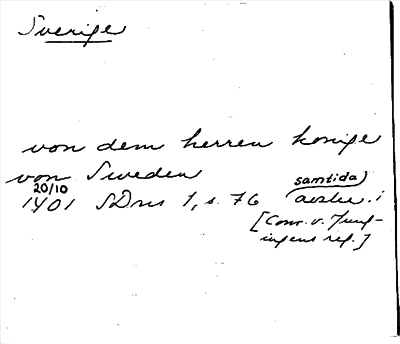 Sverige
von dem herren konige
von Sweden
20/10 samtida)
1401 SDns 1, s. 76 avskr. i
[Conr. v. Jung-
ingens ref.]